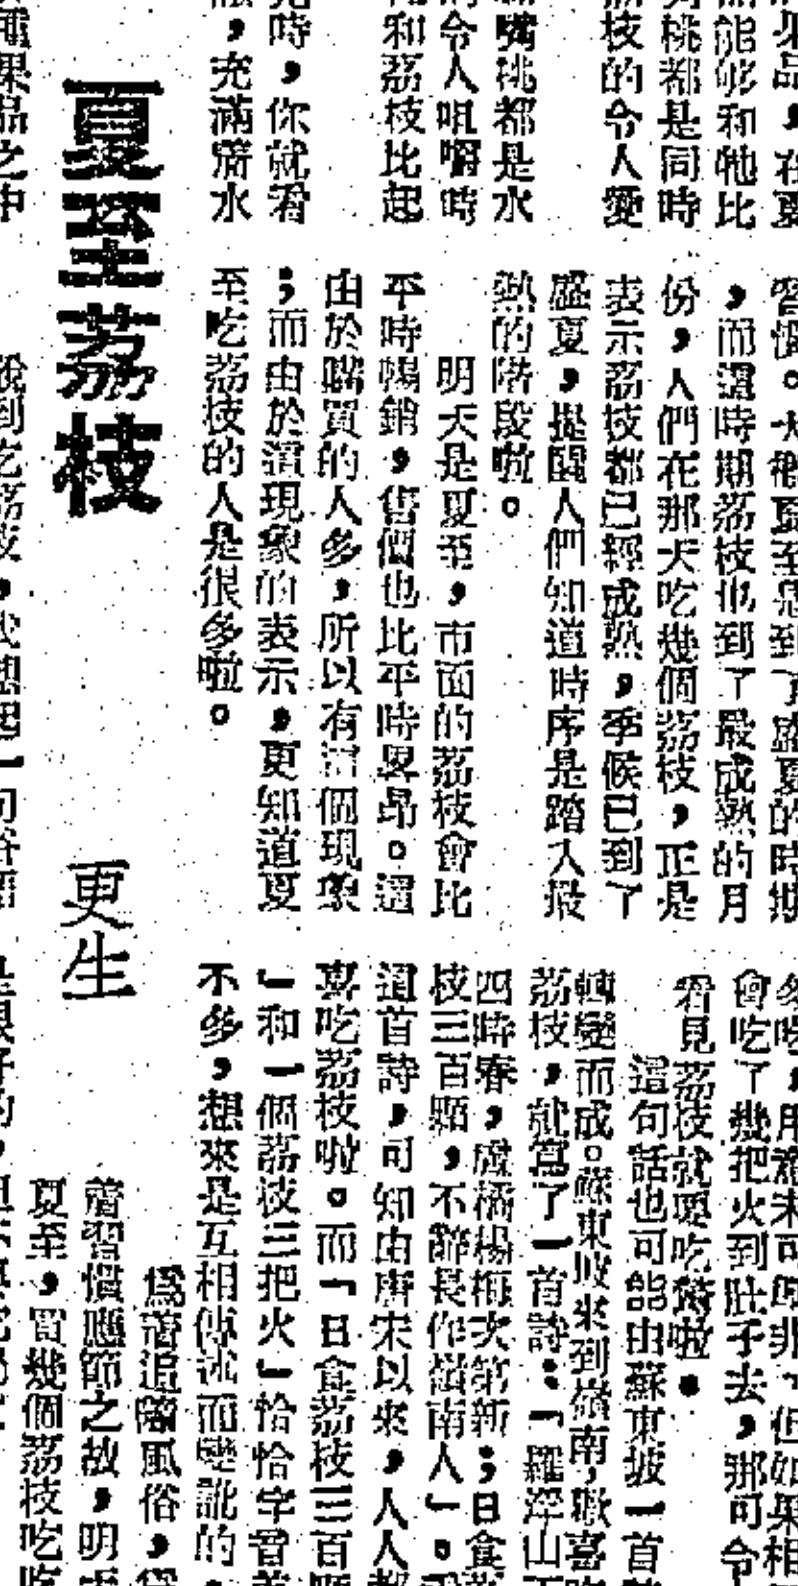 果品，在夏
能够和牠比
桃都是同時
枝的令人愛
嘴桃都是水
令人咀嚼時
和荔枝比起
時，你就看
，充滿着水
種果品之中
習慣。大概夏至是到了盛夏的時期
，而這時期荔枝也到了最成熟的月
份，人們在那天吃幾個荔枝，正是
表示荔枝都已經成熟，季候已到了
盛夏，提醒人們知道時序是踏入最
熱的階段啦。
明天是夏至，市面的荔枝會比
平時暢銷，售價也比平時畧昂。這
由於購買的人多，所以有這個現象
；而由於這現象的表示，更知道夏
至吃荔枝的人是很多啦。
夏至荔枝
更生
說到吃荔枝，我想起一句俗語
但如果相
會吃了幾把火到肚子去，那可令
看見荔枝就要吃驚啦。
這句話也可能由蘇東坡一首
轉變而成。蘇東坡來到嶺南，歡喜吃
荔枝，就寫了一首詩：「羅浮山下
四時春，盧橘楊梅次第新；日食荔
枝三百顆，不辭長作嶺南人」。
這首詩，可知由唐宋以來，人人都
喜吃荔枝啦。而「日食荔枝三百顆
」和「一個荔枝三把火」恰恰字音差
不多，想來是互相傳述而變訛的，
爲着追隨風俗，
着習慣應節之故，明天
夏至，買幾個荔枝吃吃
是很好的，